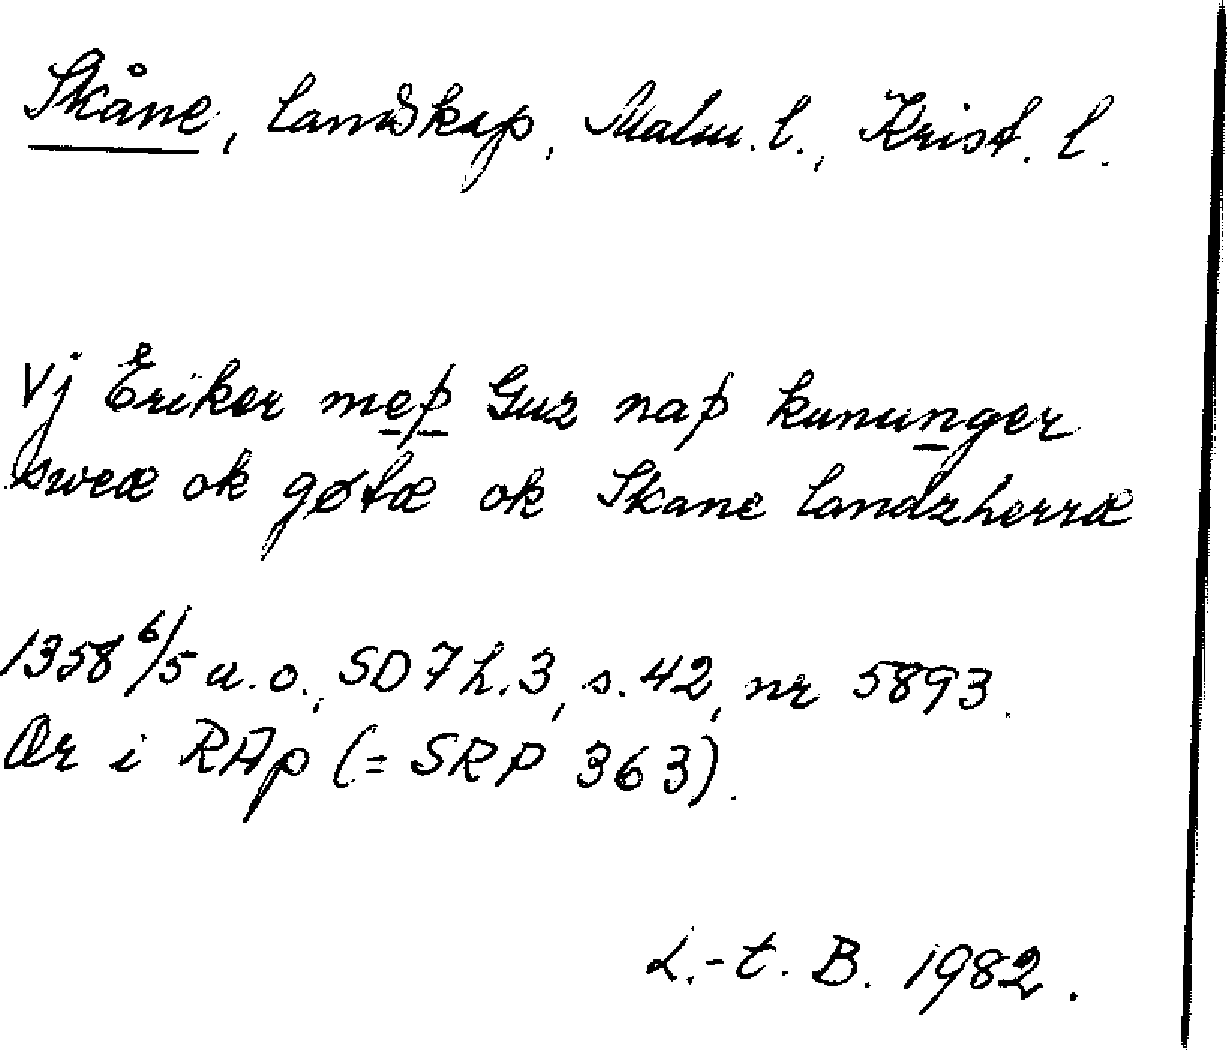 Skåne, landskap, Malm. l., Krist. l.
Vj Eriker meþ Guz naþ kununger
sweæ ok gøtæ ok Skane landzherræ
1358 6/5 u.o., SD 7 h.3, s.42, nr 5893.
Or i RAp (= SRP 363).
L.-t. B. 1982.